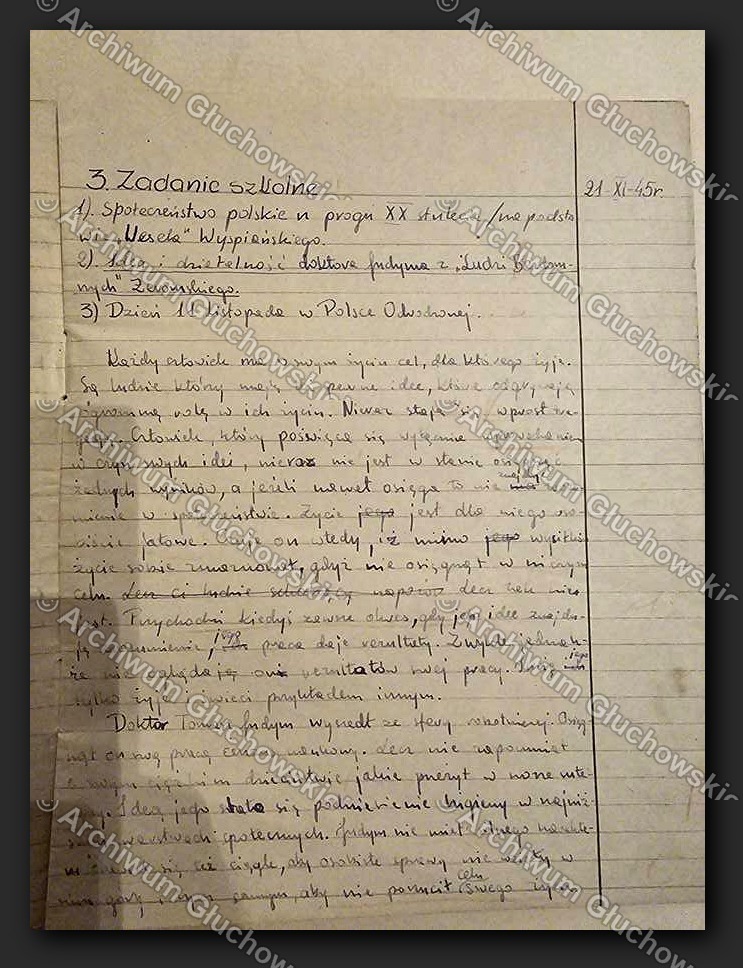 3. Zadanie szkolne
21-XI-45r.
1). Społeczeństwo polskie u progu XX stulecia /na podsta
wie „Wesela" Wyspiańskiego.
2). Idea i działalność doktora Judyma z „Ludzi Bezdom-
nych" Żeromskiego.
3) Dzień 11 Listopada w Polsce Odrodzonej.
Każdy człowiek ma w swym życiu cel, dla którego żyje.
Są ludzie którzy mają pewne idee, które odgrywają
ogromną rolę w ich życiu. Nieraz stają się wprost
Człowiek, który poświęca się wyłącznie
w czyn swych idei, nieraz nie jest w stanie osiągnąć
żadnych wyników, a jeżeli nawet osiąga to nie znajduje
w społeczeństwie. Życie jego jest dla niego oso-
biście jałowe. Czuje on wtedy, iż mimo jego wysiłków
życie sobie zmarnował, gdyż nie osiągnął w niczym
celu. Lecz ci ludzie lecz tak nie
jest. Przychodzi kiedyś zawsze okres, gdy jej idee znajdu-
ją zrozumienie, jego praca daje rezultaty. Zwykle jednak-
że nie oglądają oni rezultatów swej pracy. jego
tylko żyje i świeci przykładem innym.
Doktor Tomasz Judym wyszedł ze sfery robotniczej. Osią-
gnął on swą pracą naukowy. Lecz nie zapomniał
o swym ciężkim dzieciństwie jakie przeżył w norze
Ideą jego stało się podniesienie higieny w najniż-
szych warstwach społecznych. Judym nie miał silnego charakte-
ru się też ciągle, aby osobiste sprawy nie wzięły w
nim góry i tym samym, aby nie porzucił celu swego życia
Archiwum Głuchowski